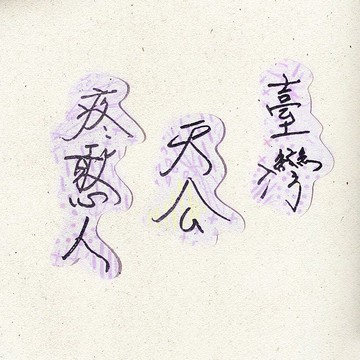 臺灣
天公
疼憨人